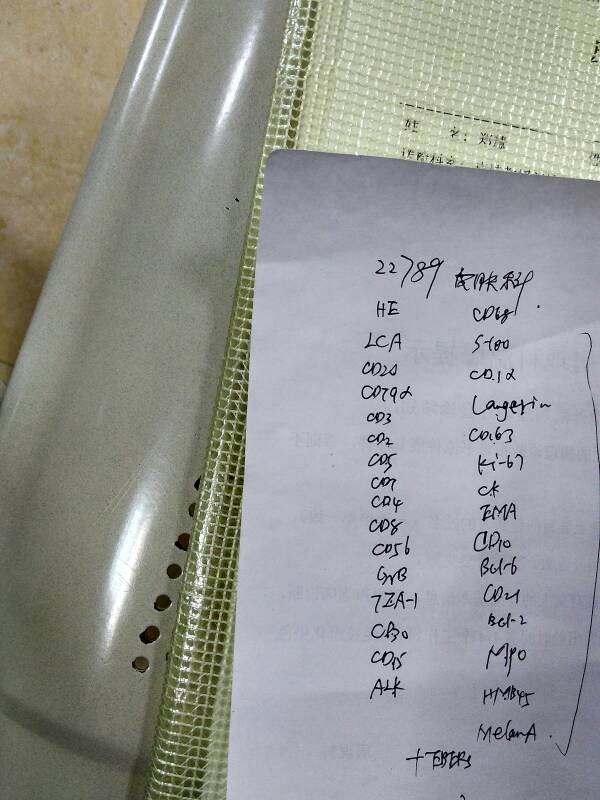 姓 名:
22789 皮肤科
HE
LCA
CD20
CD79α
CD3
CD2
CD5
CD7
CD4
CD8
CD56
GrB
TIA-1
CD30
CD15
ALK
CD68
S-100
CD1α
Langerin
CD163
Ki-67
CK
EMA
CD10
Bcl-6
CD21
Bcl-2
MPO
HMB45
MelanA.
+EBERs